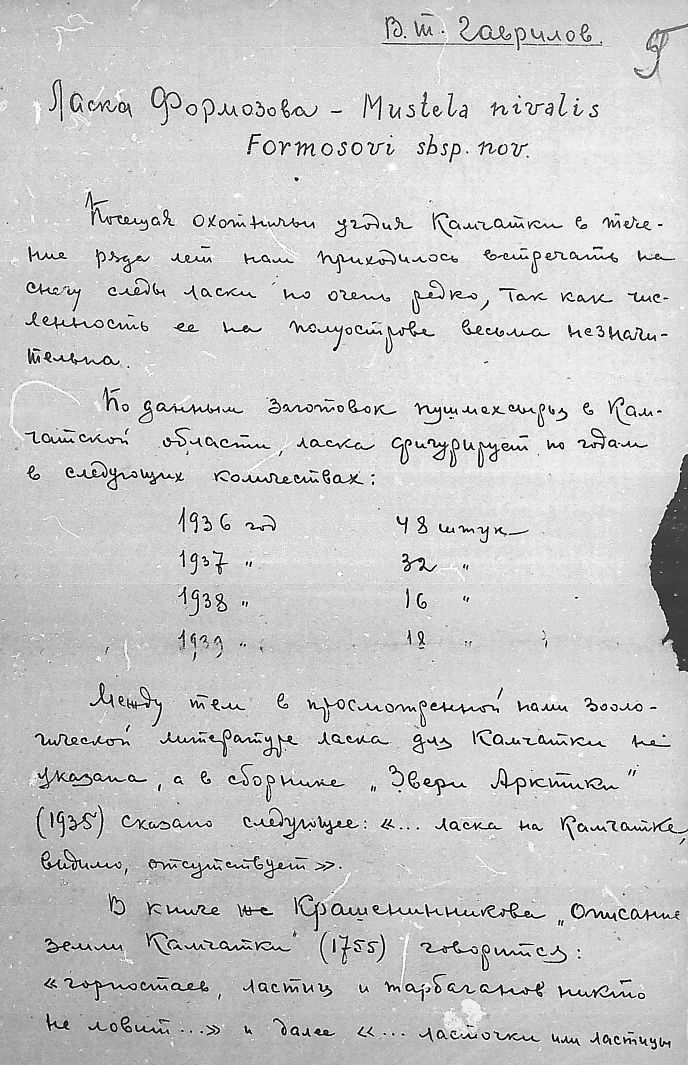 В. т. Гаврилов.
Ласка Формозова – Mustela nivalis
Formosovi sbsp. nov.
Посещая охотничьи угодия Камчатки в тече-
ние ряда лет нам приходилось встречать на
снегу следы ласки но очень редко, так как чис-
ленность ее на полуострове весьма незначи-
тельна.
По данным заготовок пушмехсырья в Кам-
чатской области, ласка фигурирует по годам
в следующих количествах:
1936 год 48 штук
1937 " 32 "
1938 " 16 "
1939 " 18 "
Между тем в просмотренной нами зооло-
гической литературе ласка для Камчатки не
указана, а в сборнике „Звери Арктики"
(1935) сказано следующее: «... ласка на Камчатке,
видимо, отсутствует».
В книге же Крашенинникова „Описание
земли Камчатки" (1755) говорится:
«горностаев, ластиц и тарбаганов никто
не ловит...» и далее «... ласточки или ластицы